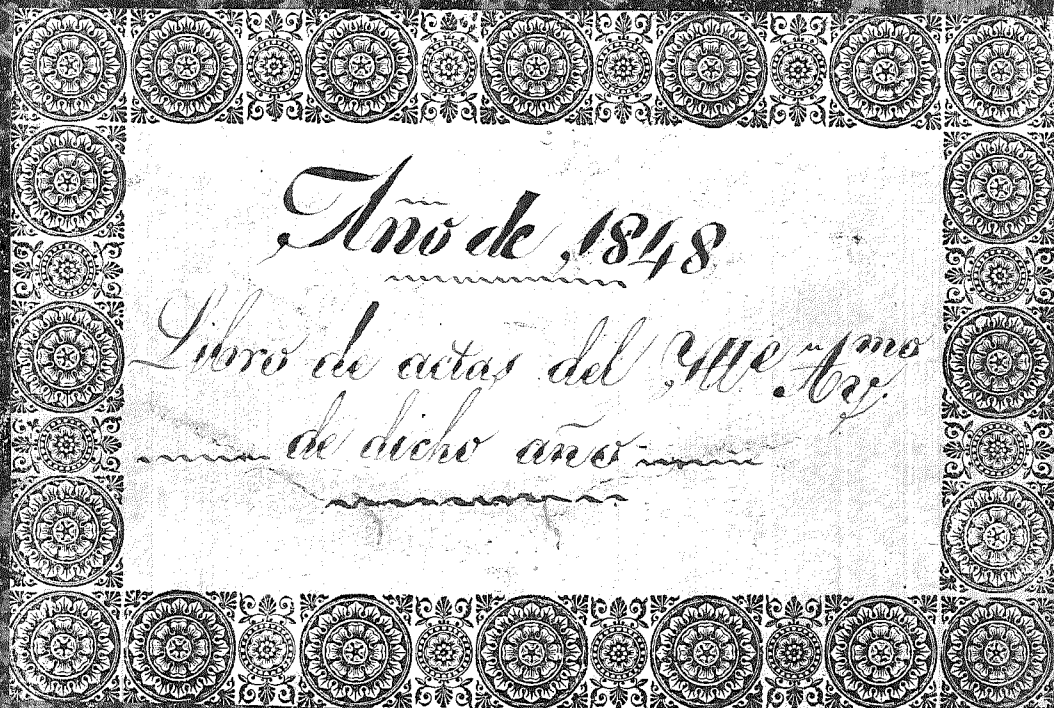 Año de 1848
Libro de actas del Ylle Aymo
de dicho año